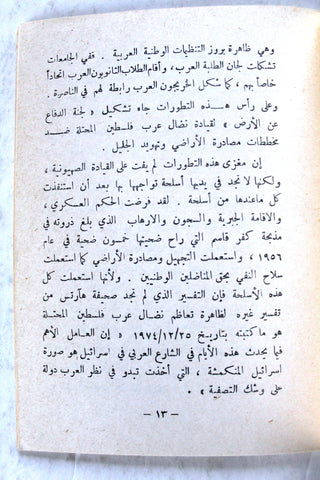 وهي ظاهرة بروز التنظيمات الوطنية العربية . ففي الجامعات
تشكلت لجان الطلبة العرب ، وأقام الطلاب الثانويون العرب اتحاداً
خاصاً بهم ، كما شكل الخريجون العرب رابطة لهم في الناصرة .
وعلى رأس هذه التطورات جاء تشكيل « لجنة الدفاع
عن الأرض » لقيادة نضال عرب فلسطين المحتلة ضد
مخططات مصادرة الأراضي وتهويد الجليل .
إن مغزى هذه التطورات لم يفت على القيادة الصهيونية ،
ولكنها لا تجد في يديها أسلحة تواجهها بها بعد أن استنفذت
كل ماعندها من أسلحة . لقد فرضت الحكم العسكري ،
والاقامة الجبرية والسجون والارهاب الذي بلغ ذروته في
مذبحة كفر قاسم التي راح ضحيتها خمسون ضحية في عام
١٩٥٦ ، واستعملت التجهيل ومصادرة الأراضي كما استعملت
سلاح النفي بحق المناضلين الوطنيين . ولأنها استعملت كل
هذه الأسلحة فإن التفسير الذي لم تجد صحيفة هآرتس من
تفسير غيره لظاهرة تعاظم نضال عرب فلسطين المحتلة
هو ماكتبته بتاريخ ١٩٧٤/١٢/٢٥ « إن العامل الأهم
فيما يحدث هذه الأيام في الشارع العربي في اسرائيل هو صورة
اسرائيل المنكمشة ، التي أخذت تبدو في نظر العرب دولة
على وشك التصفية » .
— ١٣ —